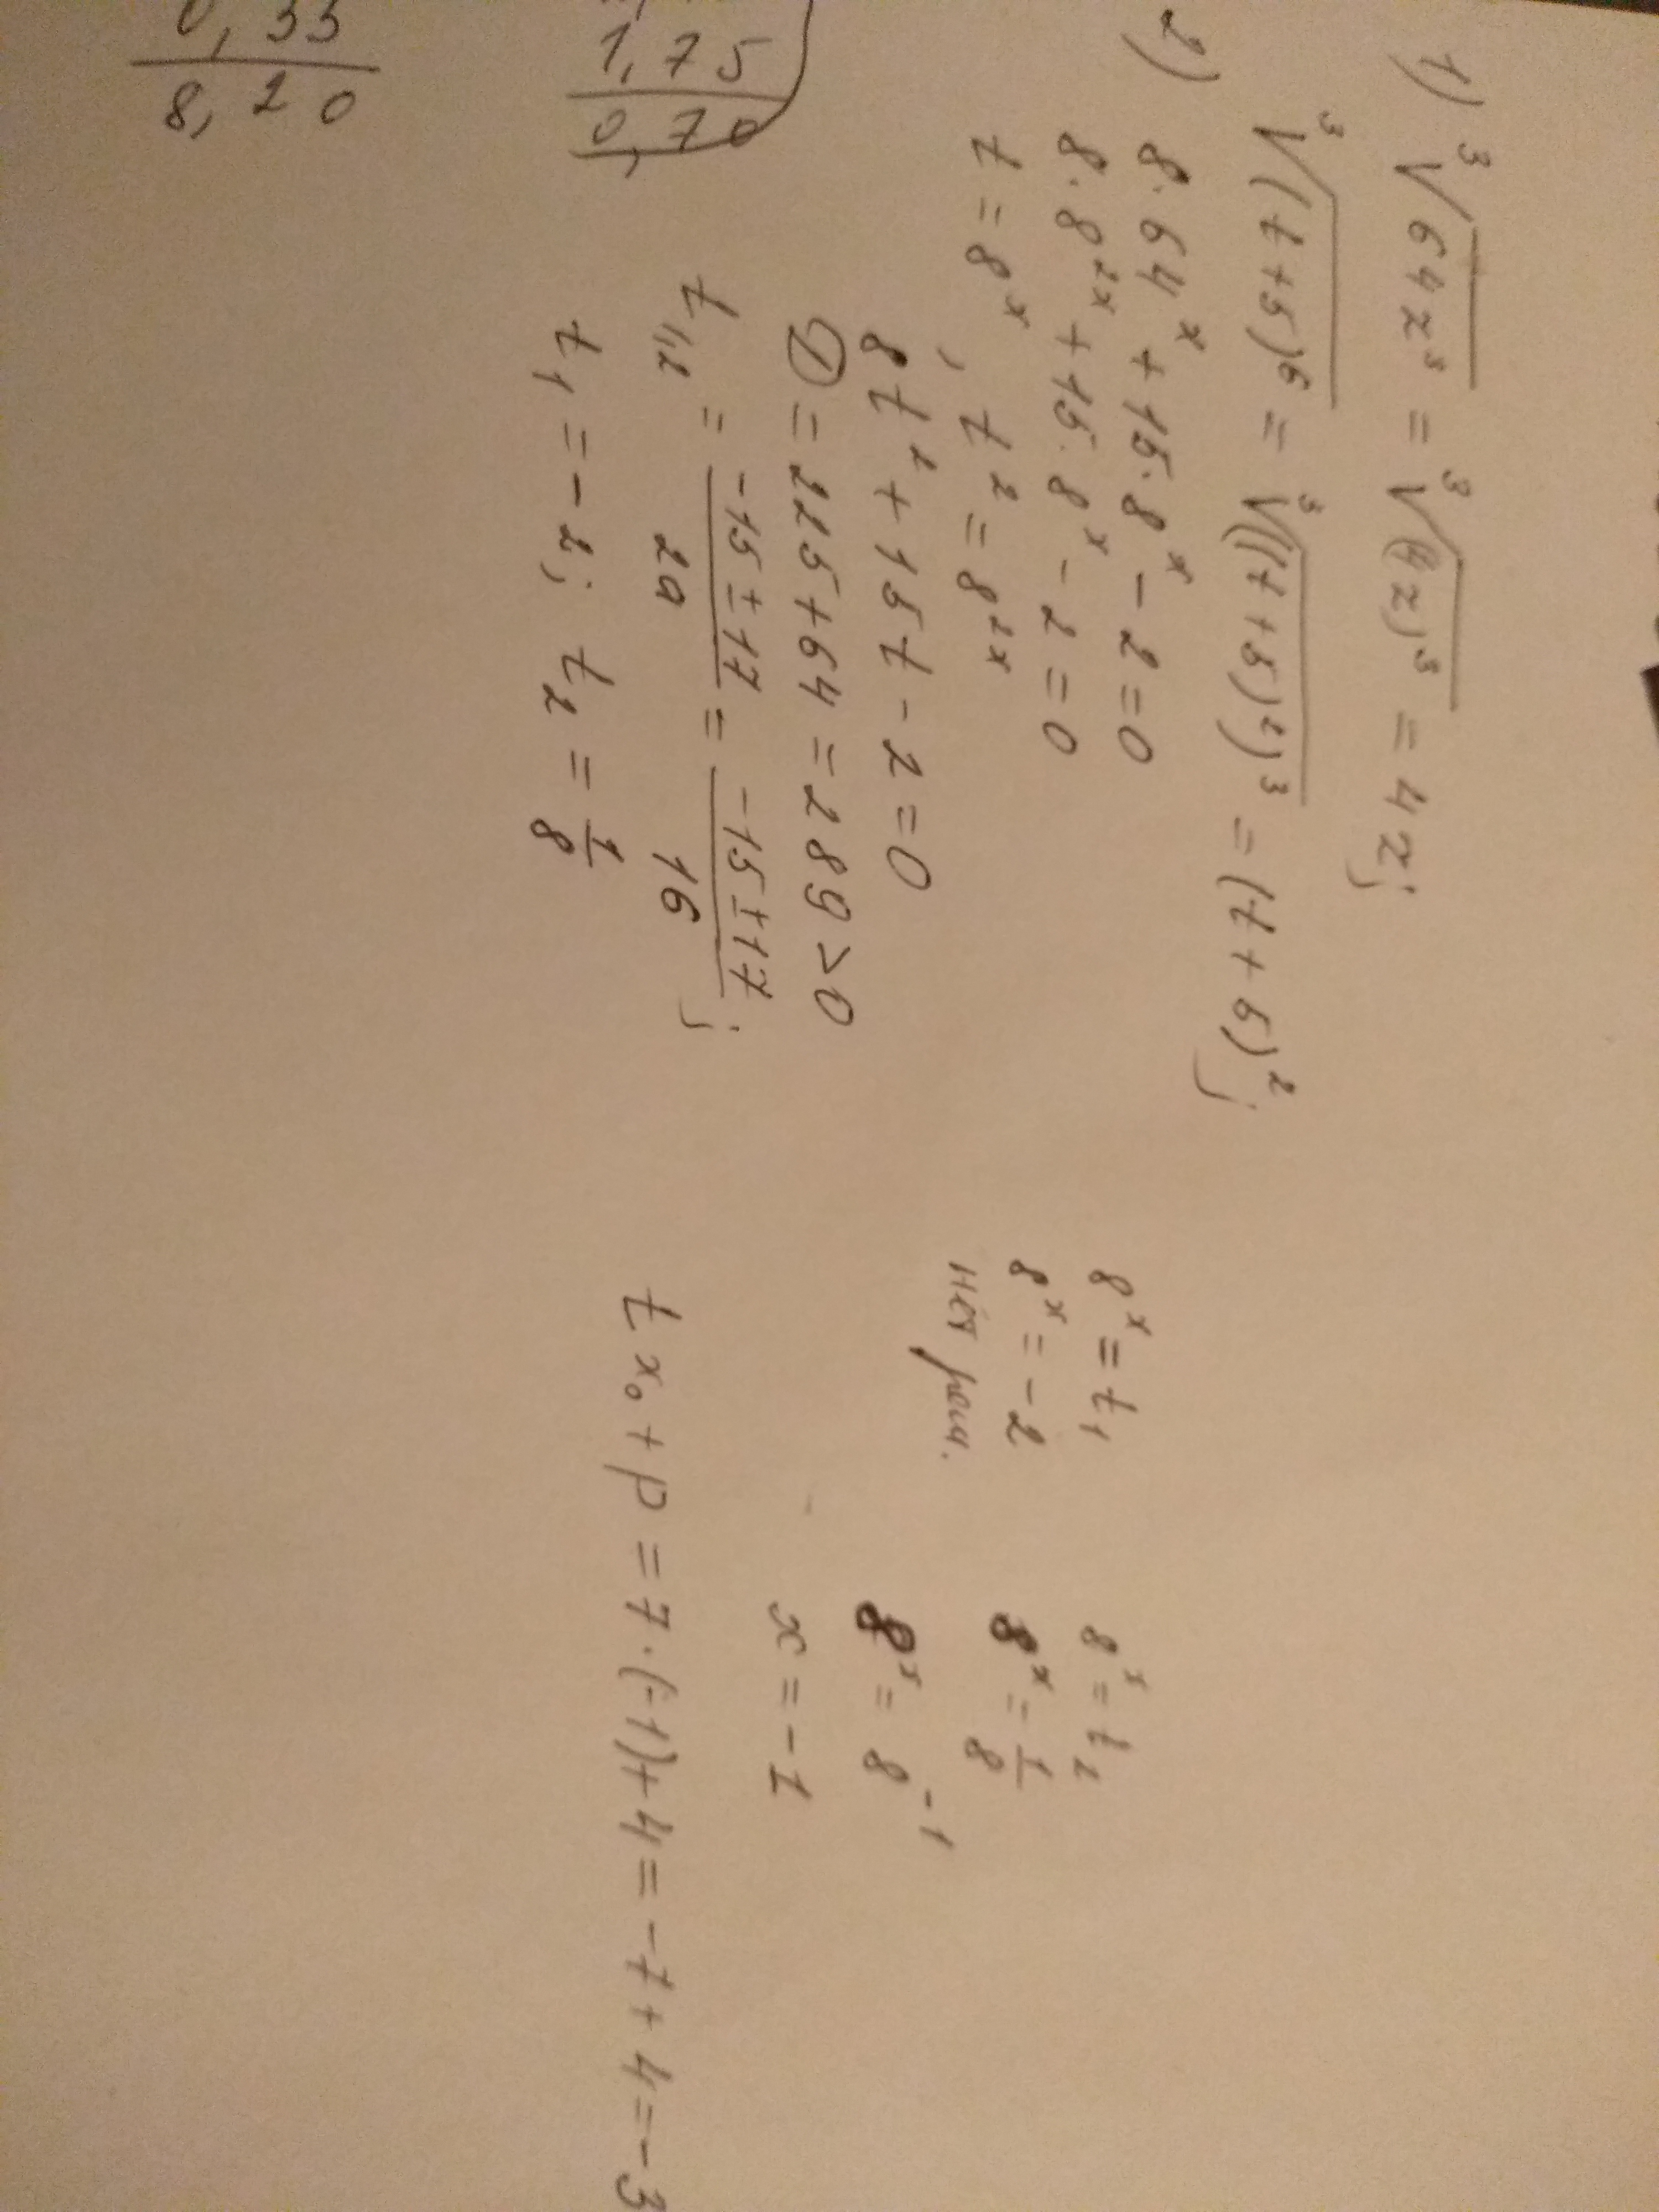 1) ∛(64z³) = ∛((4z)³) = 4z;
∛((t+5)⁶) = ∛(((t+5)²)³) = (t+5)²;
2) 8·64ˣ + 15·8ˣ - 2 = 0
8·8²ˣ + 15·8ˣ - 2 = 0
t = 8ˣ, t² = 8²ˣ
8t² + 15t - 2 = 0
D = 225 + 64 = 289 > 0
t₁,₂ = (-15 ± 17)/2a = (-15 ± 17)/16;
t₁ = -2; t₂ = 1/8
8ˣ = t₁
8ˣ = -2
нет реш.
8ˣ = t₂
8ˣ = 1/8
8ˣ = 8⁻¹
x = -1
tx₀ + p = 7·(-1) + 4 = -7 + 4 = -3
1,75
0,70
0,33
8,20